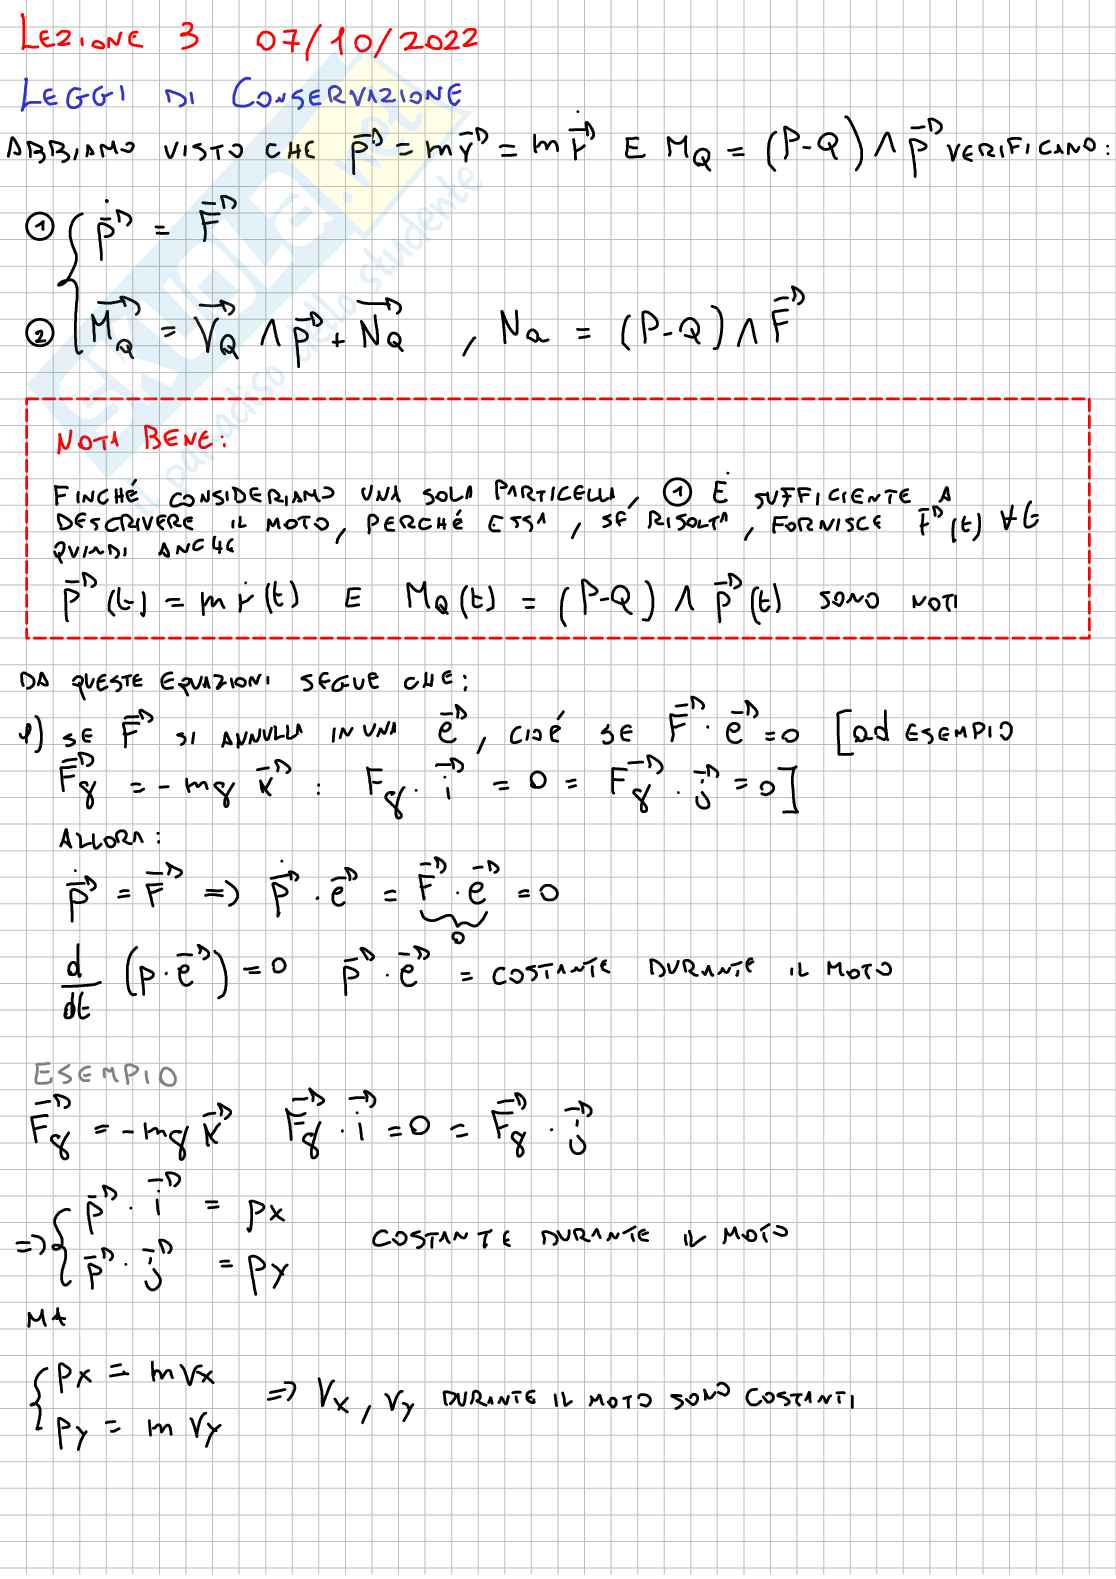 LEZIONE 3 07/10/2022
LEGGI DI CONSERVAZIONE
ABBIAMO VISTO CHE p⃗ = m v⃗ = m ṙ⃗ E M_Q = (P-Q) ∧ p⃗ VERIFICANO:
① ṗ⃗ = F⃗
② M⃗_Q = V⃗_Q ∧ p⃗ + N⃗_Q , N_Q = (P-Q) ∧ F⃗
NOTA BENE:
FINCHÉ CONSIDERIAMO UNA SOLA PARTICELLA, ① È SUFFICIENTE A
DESCRIVERE IL MOTO, PERCHÉ ESSA, SE RISOLTA, FORNISCE r⃗(t) ∀t
QUINDI ANCHE
p⃗(t) = m ṙ(t) E M_Q(t) = (P-Q) ∧ p⃗(t) SONO NOTI
DA QUESTE EQUAZIONI SEGUE CHE:
1) SE F⃗ SI ANNULLA IN UNA e⃗, CIOÉ SE F⃗ · e⃗ = 0 [ad ESEMPIO
F⃗g = - mg k⃗ : Fg · i⃗ = 0 = F⃗g · j⃗ = 0]
ALLORA:
ṗ⃗ = F⃗ => ṗ⃗ · e⃗ = F⃗ · e⃗ = 0
0
d/dt (p · e⃗) = 0 p⃗ · e⃗ = COSTANTE DURANTE IL MOTO
ESEMPIO
F⃗g = -mg k⃗ F⃗g · i⃗ = 0 = F⃗g · j⃗
=> { p⃗ · i⃗ = px
p⃗ · j⃗ = py
COSTANTE DURANTE IL MOTO
MA
{ px = m vx
py = m vy
=> Vx, Vy DURANTE IL MOTO SONO COSTANTI
SKUOLA.net
il paradiso dello studente